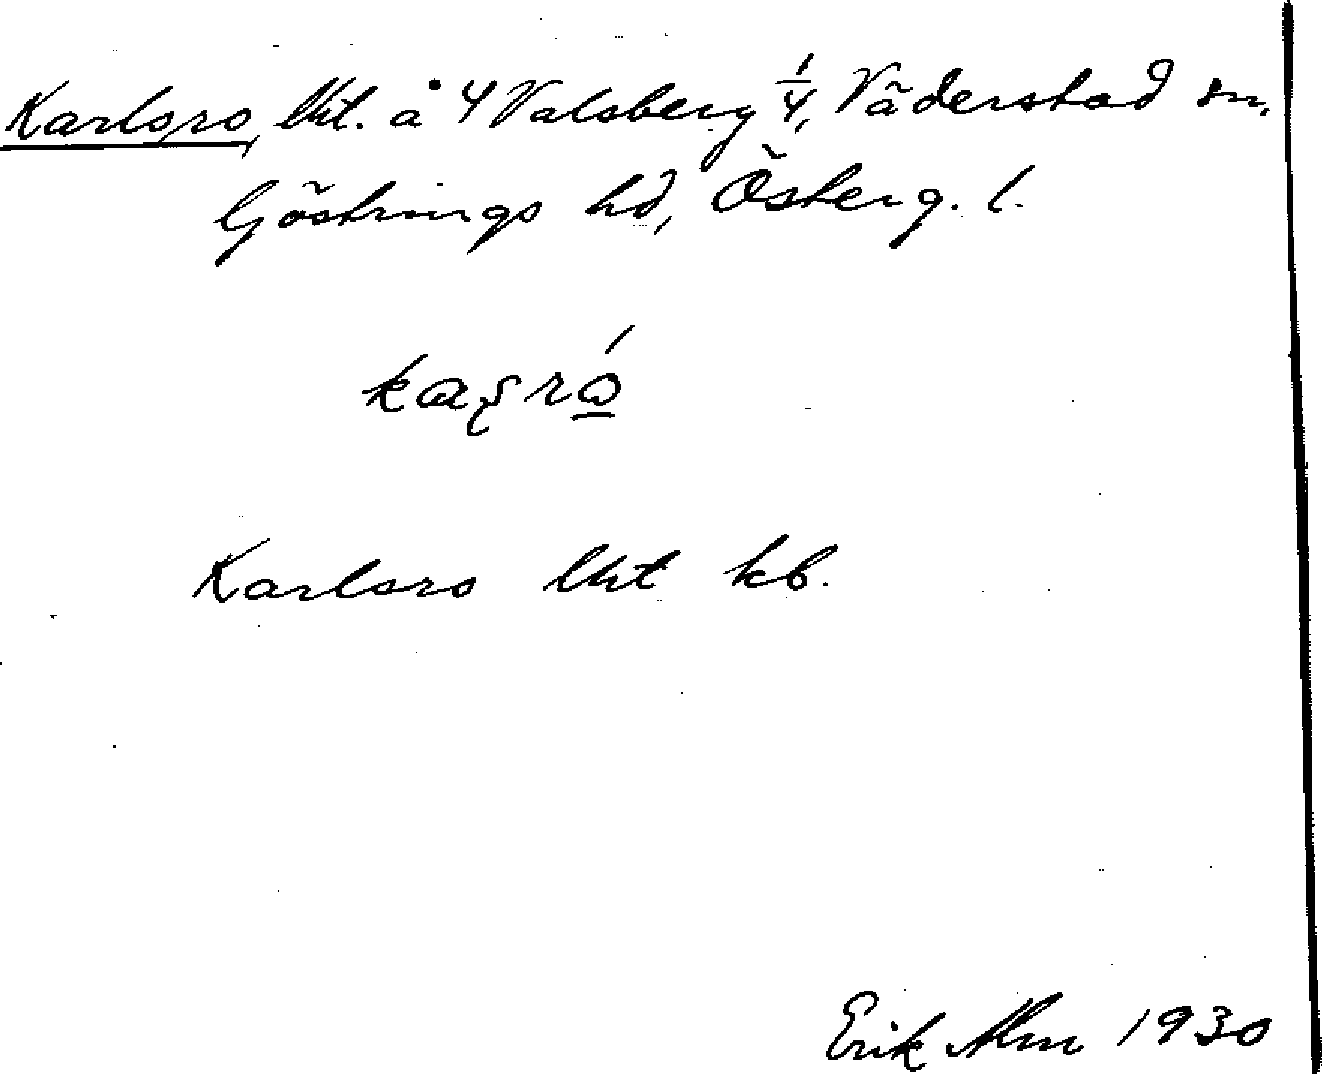 Karlsro, lht. å 4 Valsberg 1/4, Väderstad sn,
Göstrings hd, Österg. l.
Karlsro lht kb.
Erik Alm 1930